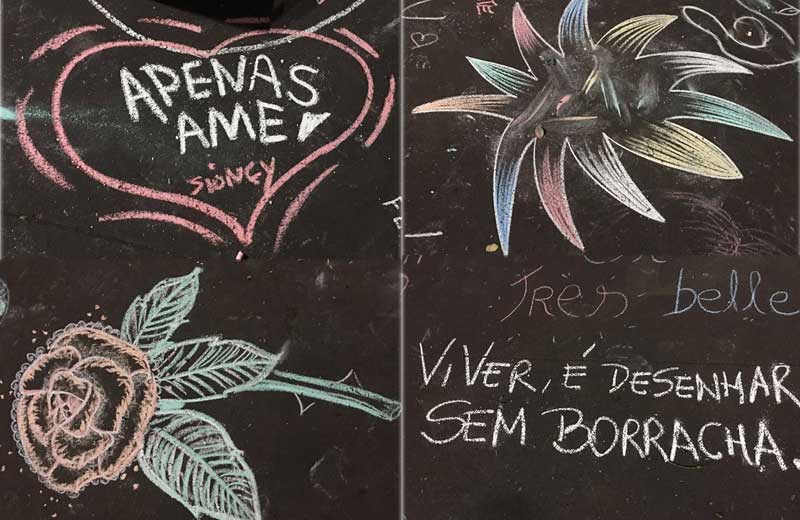 APENAS
AME
SiDNEY
Très belle
ViVER, É DESENHAR
SEM BORRACHA.